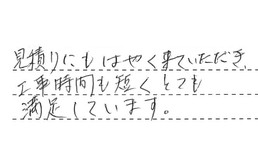 見積りにもはやく来ていただき、
工事時間も短くとても
満足しています。